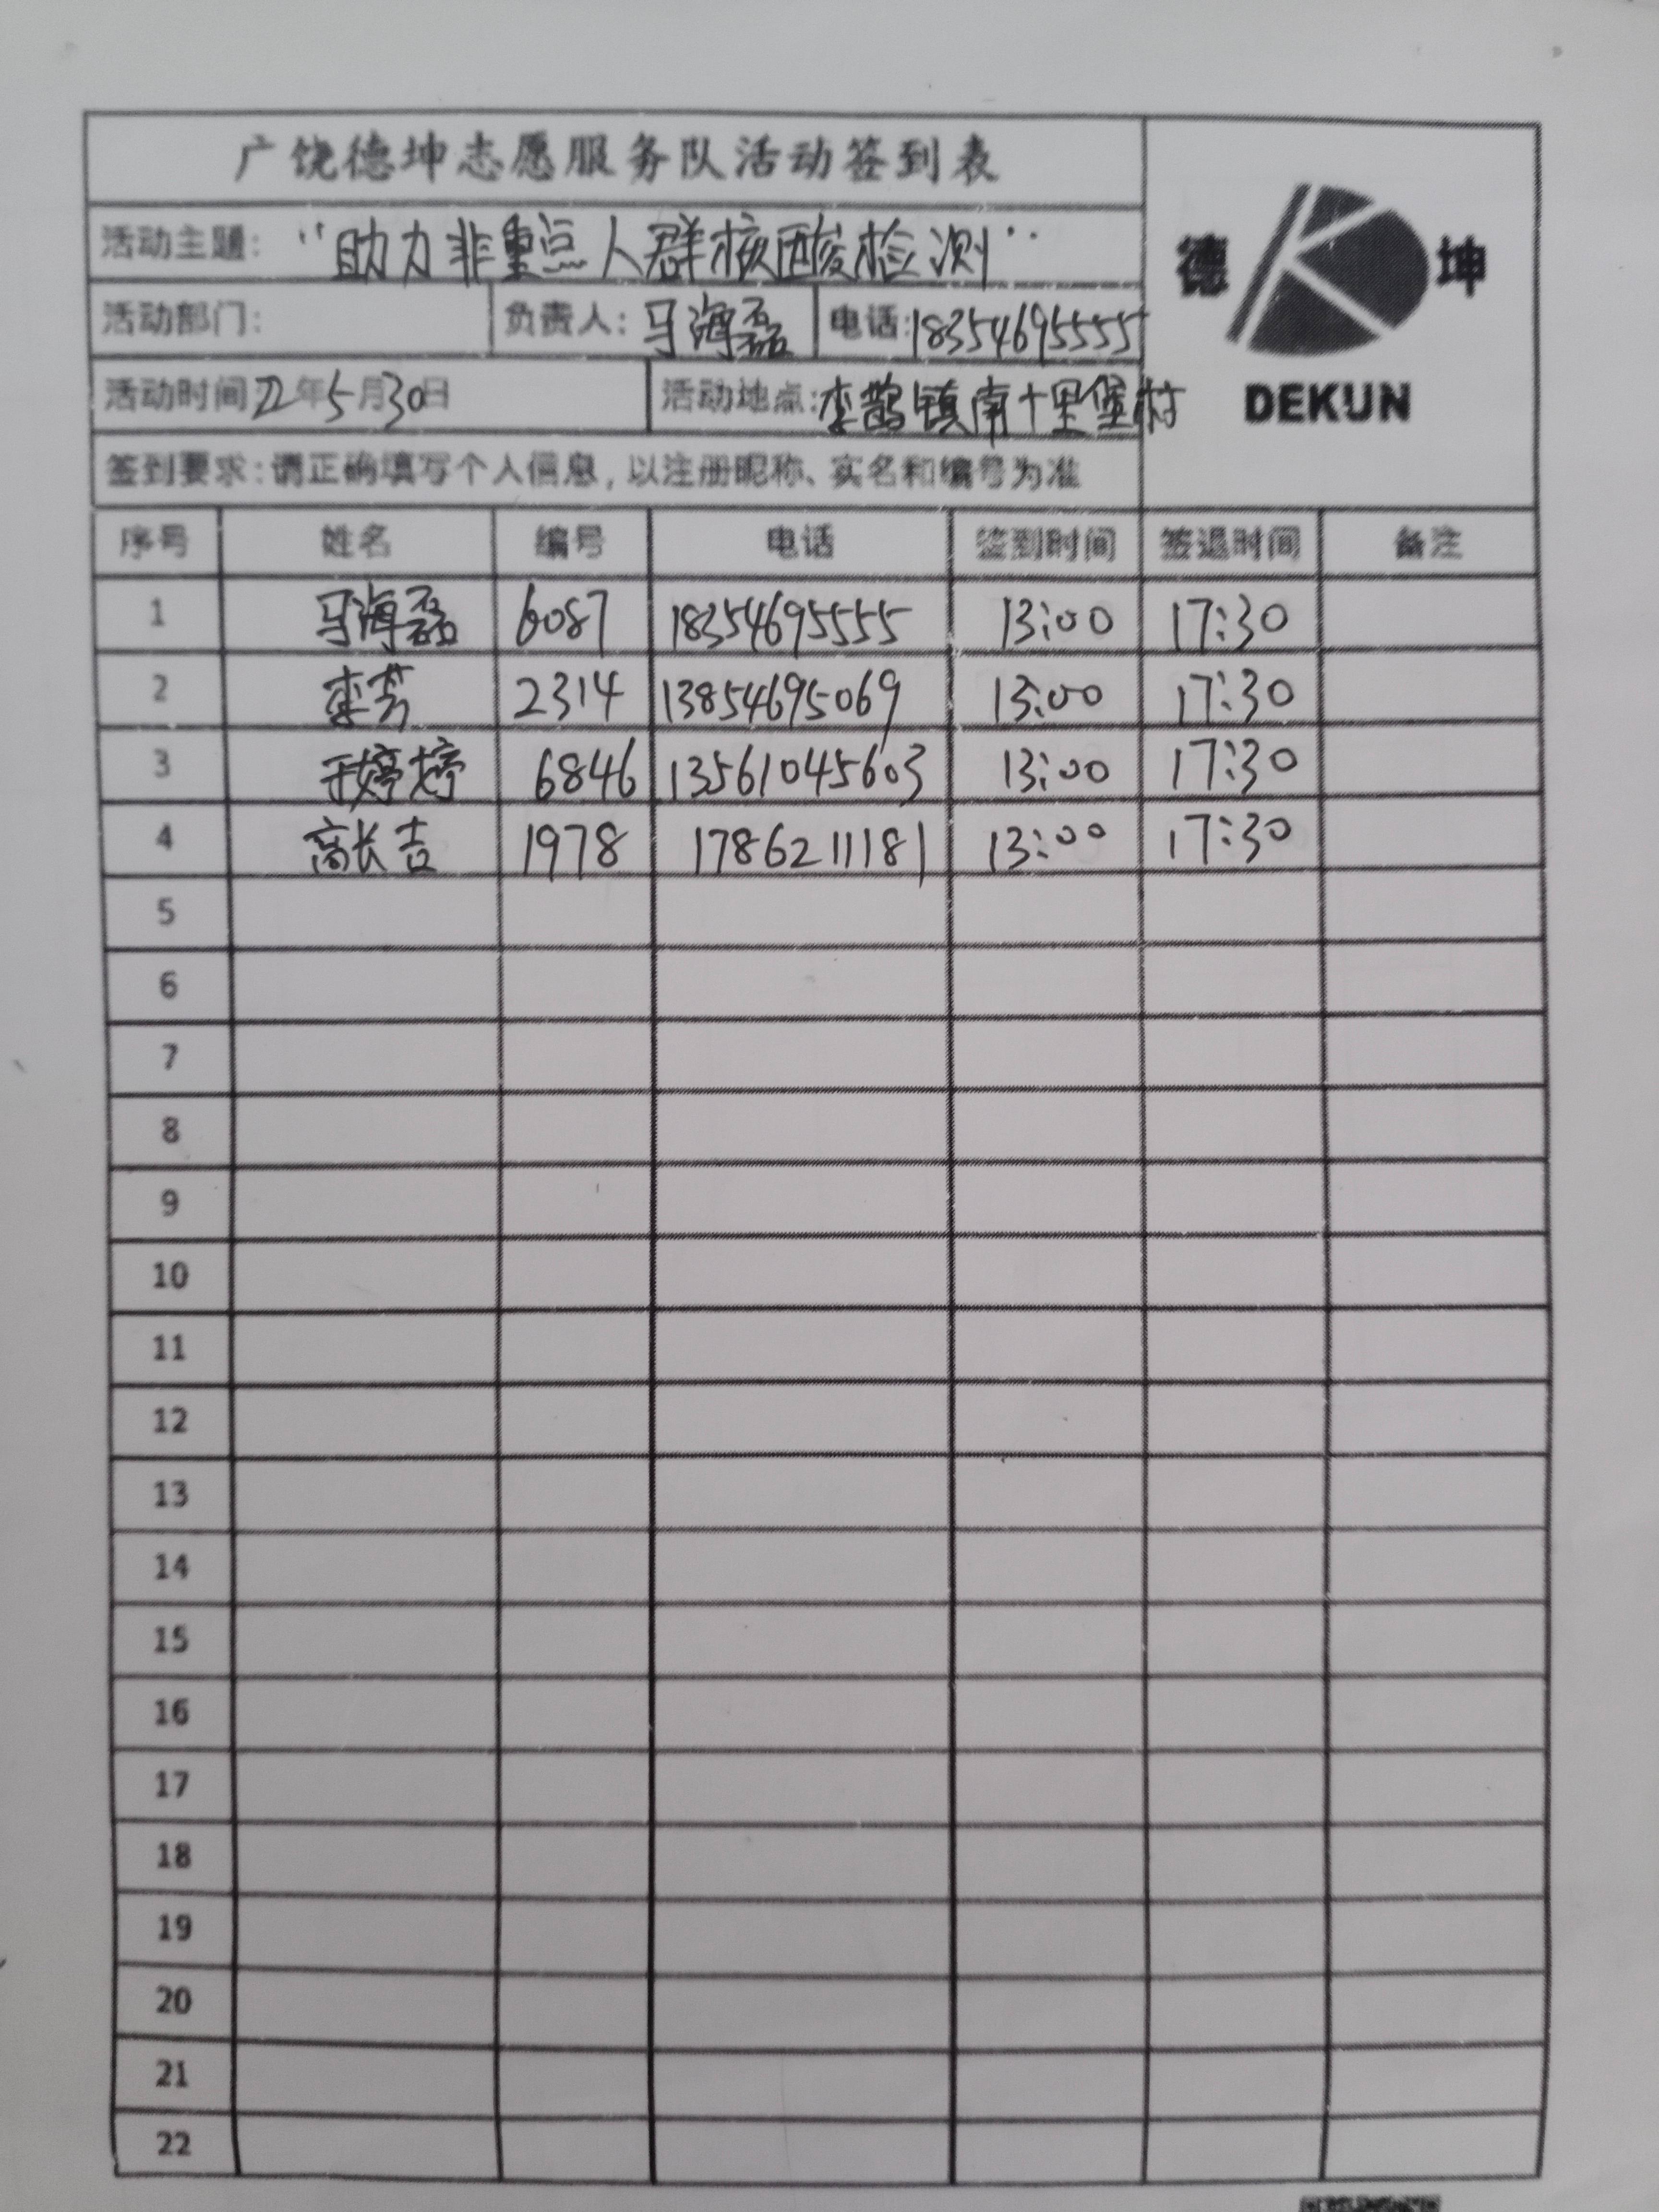 广饶德坤志愿服务队活动签到表
活动主题："助力非重点人群核酸检测"
德 坤
活动部门： 负责人：马海磊 电话：18354695555
活动时间22年5月30日 活动地点：李鹊镇南十里堡村
DEKUN
签到要求：请正确填写个人信息，以注册昵称、实名和编号为准
序号 姓名 编号 电话 签到时间 签退时间 备注
1 马海磊 6087 18354695555 13:00 17:30
2 栾芳 2314 13854695069 13:00 17:30
3 于婷婷 6846 13561045603 13:00 17:30
4 高长吉 1978 17862111181 13:00 17:30
5
6
7
8
9
10
11
12
13
14
15
16
17
18
19
20
21
22